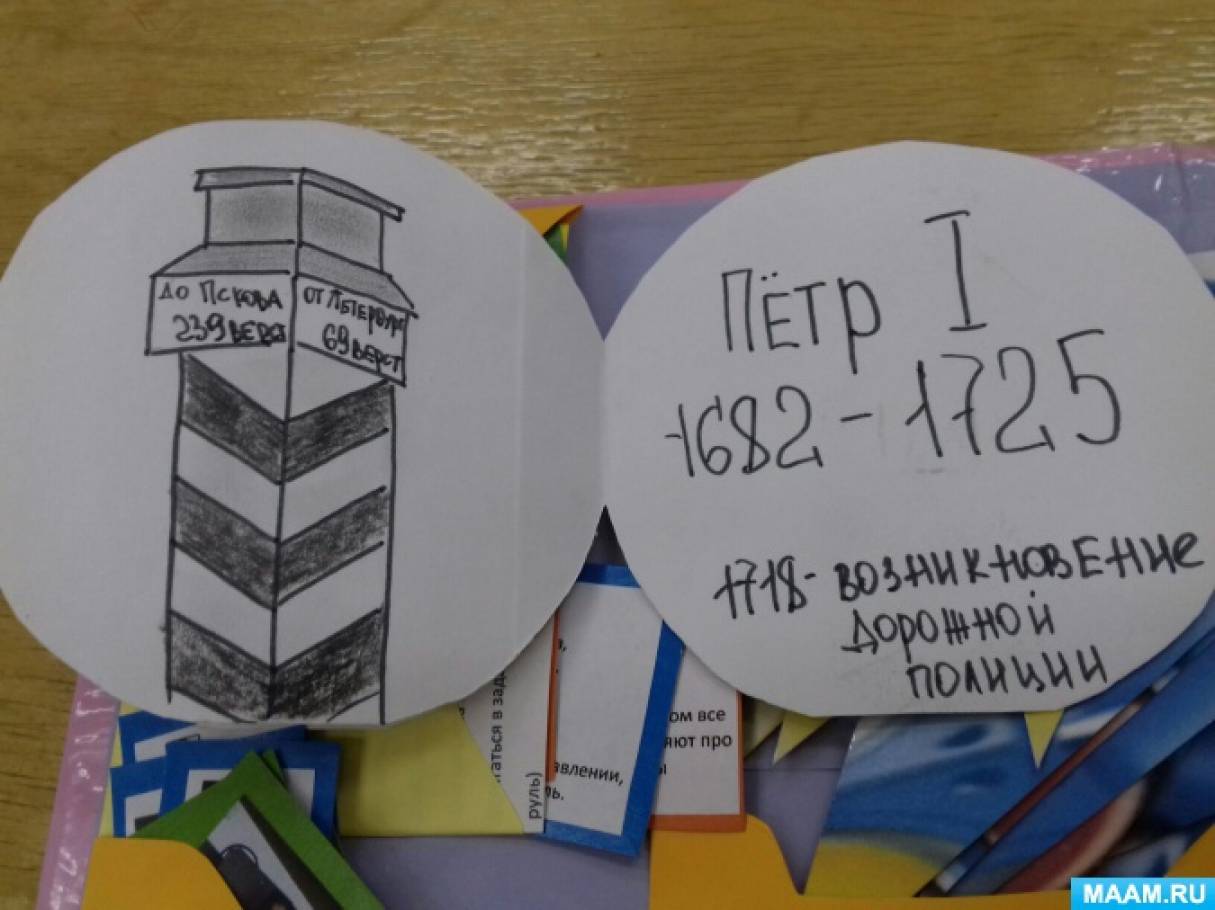 до Пскова
239 вёрст
от Петербург
69 вёрст
Пётр I
1682 - 1725
1718- возникновение
дорожной
полиции
ом все
яют про
авлении,
руль)
MAAM.RU